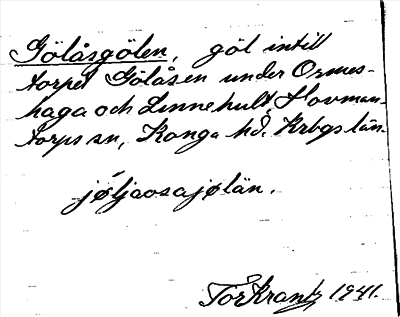 Gölåsgölen, göl intill
torpet Gölåsen under Ormes-
haga och Linnehult, Hovman-
torps sn, Konga hd. Krbgs län.
jøljaosajølän.
Tor Krantz 1941.